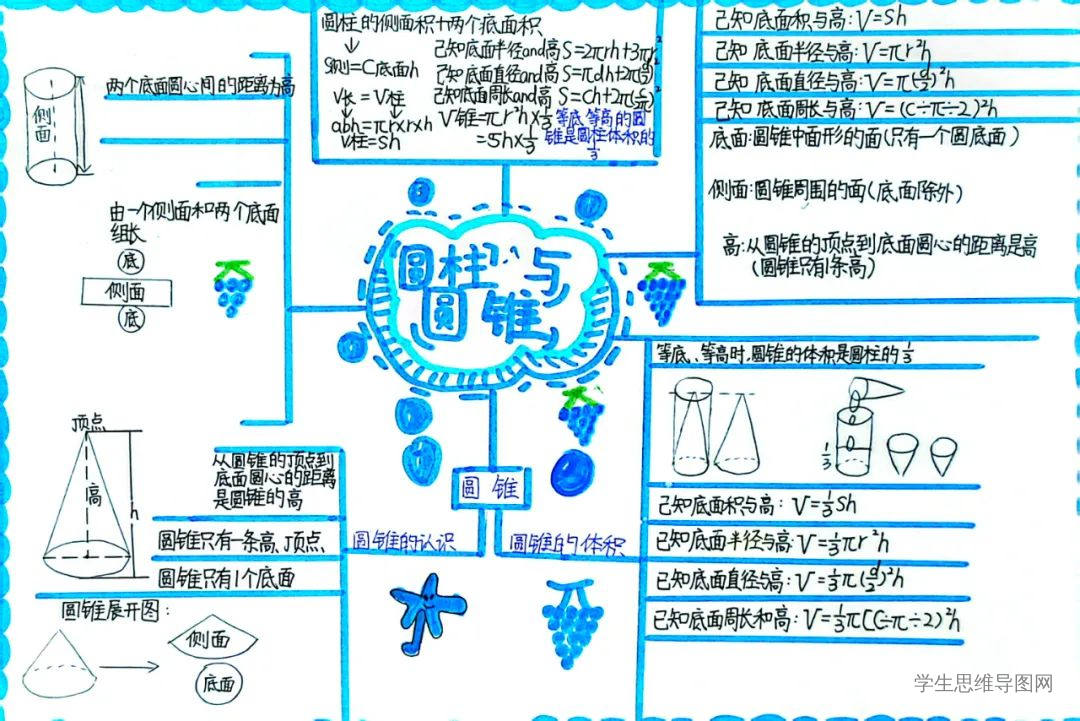 圆柱的侧面积十两个底面积
S侧=C底面h
V长=V柱
abh=πr×r×h
V柱=Sh
己知底面半径and高S=2πrh+3πr²
己知底面直径and高S=πdh+2π(d/2)²
己知底面周长and高S=Ch+2π(C/2π)²
V锥=πr²h×1/3
=Sh×1/3
等底等高的圆
锥是圆柱体积的
1/3
己知底面积与高:V=Sh
己知底面半径与高:V=πr²h
己知底面直径与高:V=π(d/2)²h
己知底面周长与高:V=(C÷π÷2)²h
底面:圆锥中面形的面(只有一个圆底面)
侧面:圆锥周围的面(底面除外)
高:从圆锥的顶点到底面圆心的距离是高
(圆锥只有1条高)
侧面
两个底面圆心间的距离为高
由一个侧面和两个底面
组长
底
侧面
底
圆柱与
圆锥
等底、等高时,圆锥的体积是圆柱的1/3
1/3
己知底面积与高:V=1/3Sh
己知底面半径与高:V=1/3πr²h
己知底面直径与高:V=1/3π(d/2)²h
己知底面周长和高:V=1/3π(C÷π÷2)²h
圆锥
圆锥的认识
圆锥的体积
顶点
高
h
从圆锥的顶点到
底面圆心的距离
是圆锥的高
圆锥只有一条高、顶点
圆锥只有1个底面
圆锥展开图:
侧面
底面
学生思维导图网